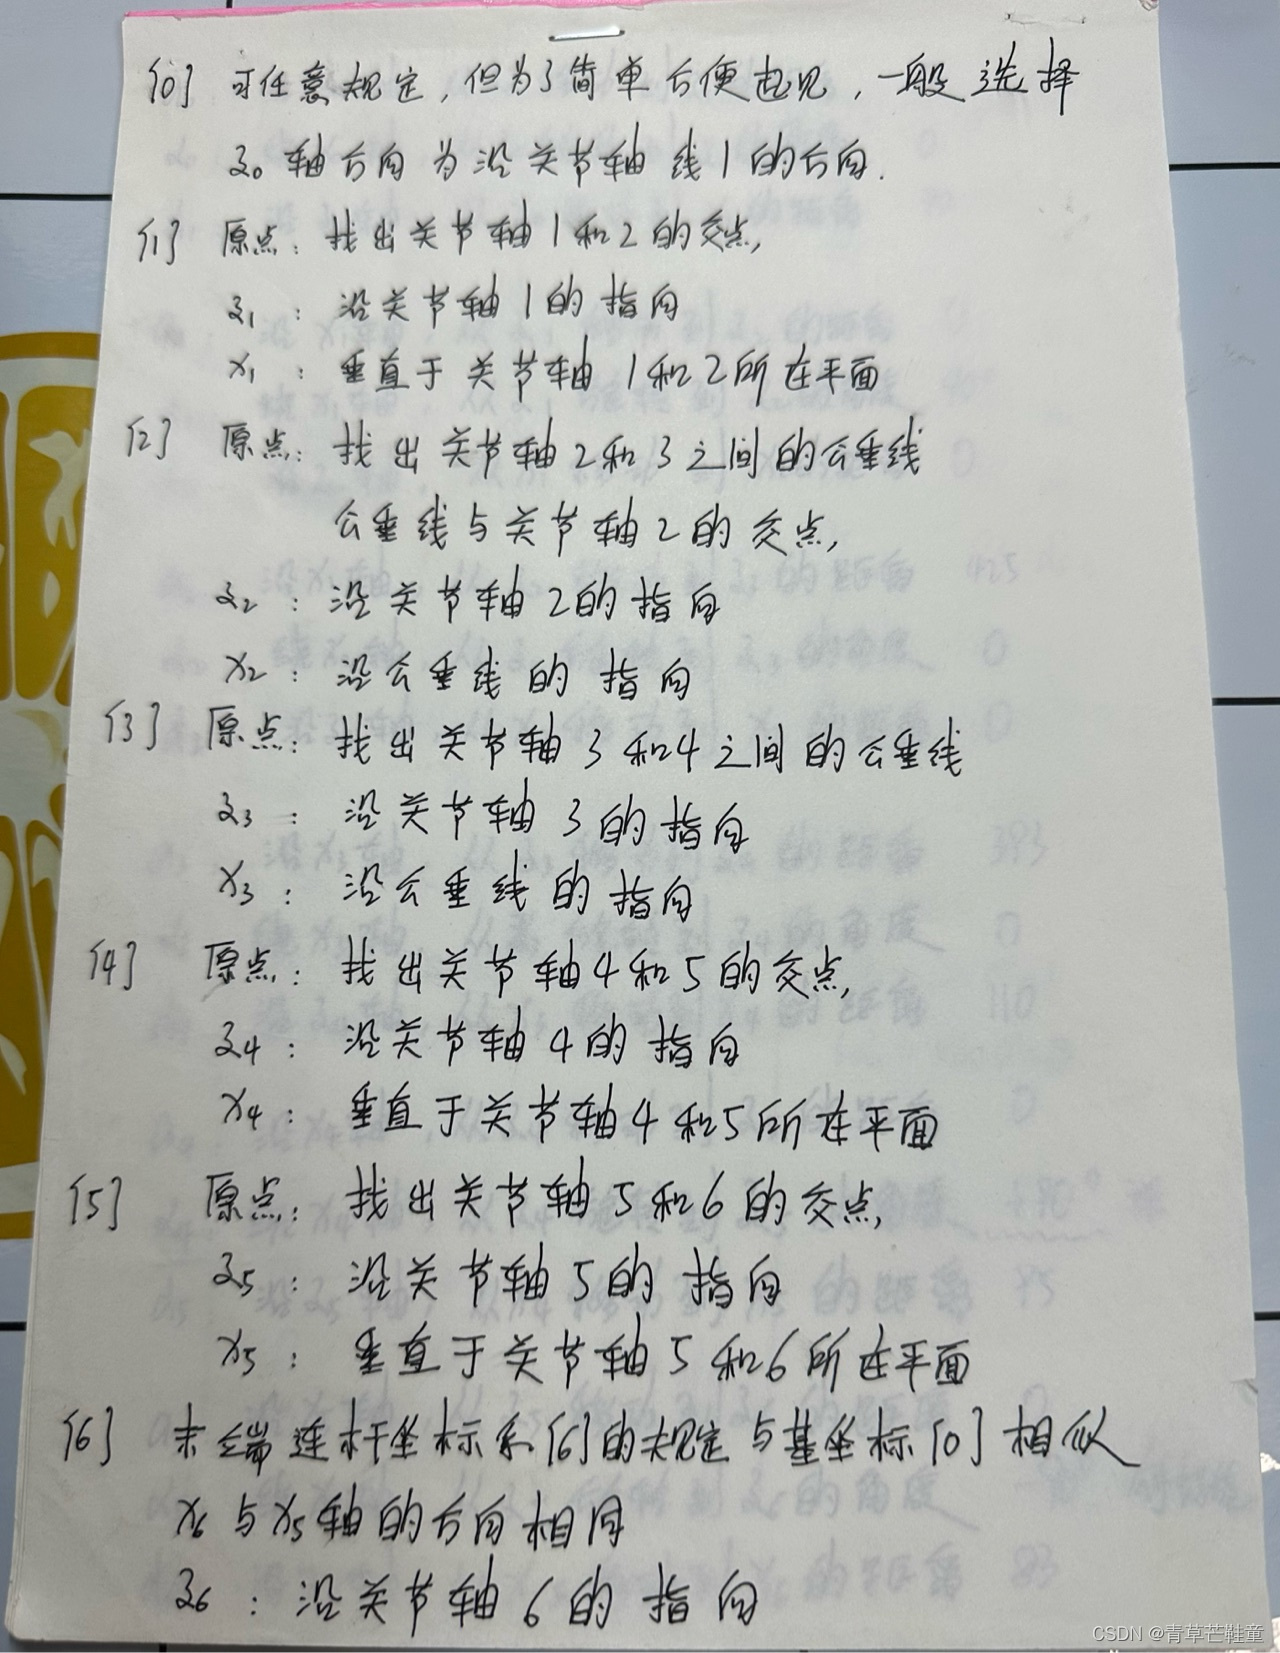 {0} 可任意规定,但为了简单方便起见,一般选择
z₀ 轴方向为沿关节轴线1的方向.
{1} 原点: 找出关节轴1和2的交点,
z₁ : 沿关节轴1的指向
x₁ : 垂直于关节轴1和2所在平面
{2} 原点: 找出关节轴2和3之间的公垂线
公垂线与关节轴2的交点,
z₂ : 沿关节轴2的指向
x₂ : 沿公垂线的指向
{3} 原点: 找出关节轴3和4之间的公垂线
z₃ : 沿关节轴3的指向
x₃ : 沿公垂线的指向
{4} 原点: 找出关节轴4和5的交点,
z₄ : 沿关节轴4的指向
x₄ : 垂直于关节轴4和5所在平面
{5} 原点: 找出关节轴5和6的交点,
z₅ : 沿关节轴5的指向
x₅ : 垂直于关节轴5和6所在平面
{6} 末端连杆坐标系{6}的规定与基坐标{0}相似
x₆与x₅轴的方向相同
z₆ : 沿关节轴6的指向
CSDN @青草芒鞋童